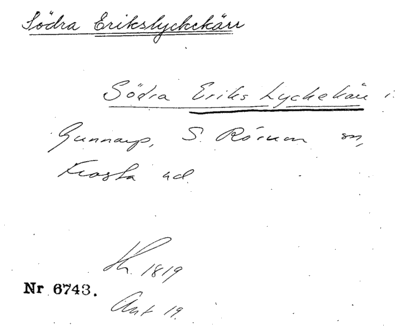 Södra Erikslyckekärr
Södra Eriks Lyckekärr i
Gunnarp, S. Rörum sn,
Frosta hd.
Lh. 1819
Nr 6743.
Akt 19.